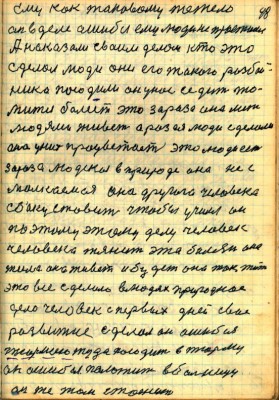 ему как таковому тяжело
он в деле ошибся ему люди не простили
А наказан своим делом кто это
сделал люди они его такого разбой-
ника породили он у нас сидит то-
мится болеет это зараза она меж
людями живет а разве люди сделали
она у них процветает это людская
зараза людская в природе она не с
она другого человека
чтобы учил он
поэтому этому делу человек
человека тянет эта болезнь она
жила она живет и будет она так жить
это все сделало в людях природное
дело человек с первых дней свое
развитие сделал он ошибся
тюрьмою туда посадит в тюрьму
он ошибся положит в больницу
он же там стонет